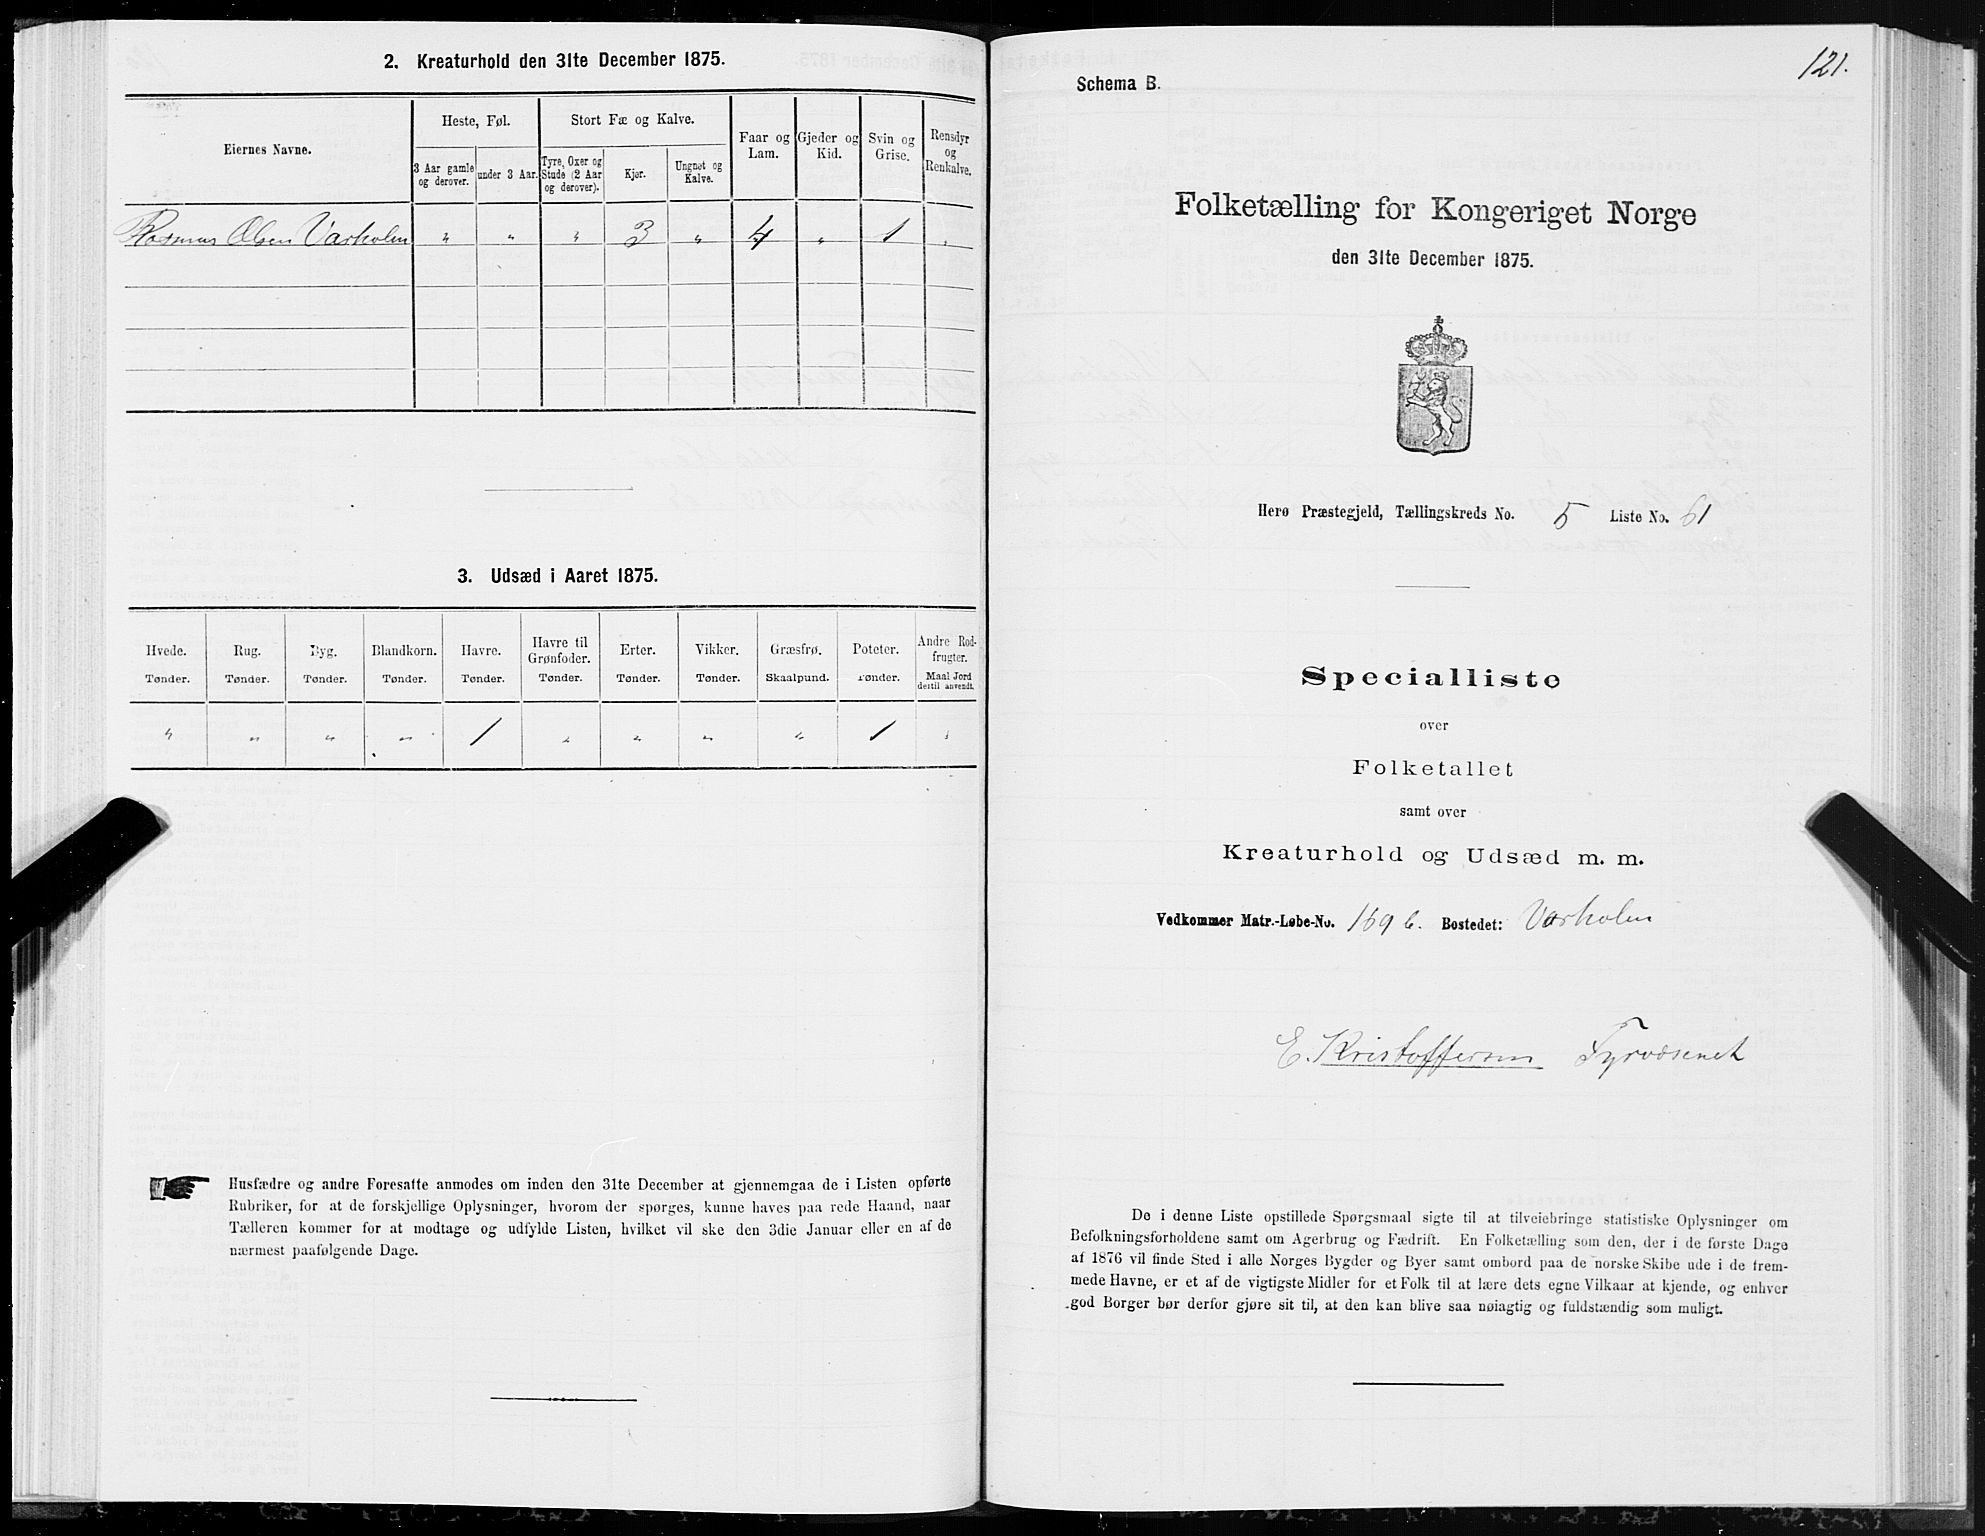 2. Kreaturhold den 31te December 1875.
Eiernes Navne.
Heste, Føl.
Stort Fæ og Kalve.
Faar og Lam.
Gjeder og Kid.
Svin og Grise.
Rensdyr og Renkalve.
3 Aar gamle og derover.
under 3 Aar.
Tyre, Oxer og Stude (2 Aar og derover).
Kjør.
Ungnøt og Kalve.
Rasmus Olsen Varholm " " " 3 " 4 " 1 "
3. Udsæd i Aaret 1875.
Hvede. Rug. Byg. Blandkorn. Havre. Havre til Grønfoder. Erter. Vikker. Græsfrø. Poteter. Andre Rodfrugter.
Tønder. Tønder. Tønder. Tønder. Tønder. Tønder. Tønder. Tønder. Skaalpund. Tønder. Maal Jord dertil anvendt.
" " " " 1 " " " " 1 "
Husfædre og andre Foresatte anmodes om inden den 31te December at gjennemgaa de i Listen opførte
Rubriker, for at de forskjellige Oplysninger, hvorom der spørges, kunne haves paa rede Haand, naar
Tælleren kommer for at modtage og udfylde Listen, hvilket vil ske den 3die Januar eller en af de
nærmest paafølgende Dage.
121.
Schema B.
Folketælling for Kongeriget Norge
den 31te December 1875.
Herø Præstegjeld, Tællingskreds No. 5 Liste No. 61
Specialliste
over
Folketallet
samt over
Kreaturhold og Udsæd m. m.
Vedkommer Matr.-Løbe-No. 169 b. Bostedet: Varholm
E. Kristoffersen
De i denne Liste opstillede Spørgsmaal sigte til at tilveiebringe statistiske Oplysninger om
Befolkningsforholdene samt om Agerbrug og Fædrift. En Folketælling som den, der i de første Dage
af 1876 vil finde Sted i alle Norges Bygder og Byer samt ombord paa de norske Skibe ude i de frem-
mede Havne, er et af de vigtigste Midler for et Folk til at lære dets egne Vilkaar at kjende, og enhver
god Borger bør derfor gjøre sit til, at den kan blive saa nøiagtig og fuldstændig som muligt.